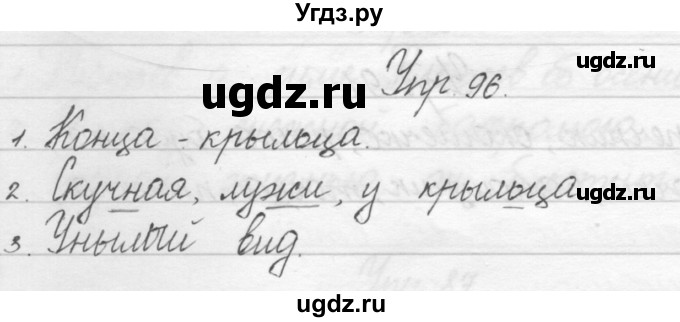 Угдз.ру
Упр. 96.
ugdz.ru
ugdz.ru
1. Конца - крыльца.
2. Скучная, лужи, у крыльца
3. Унылый вид.
ugdz.ru
ugdz.ru